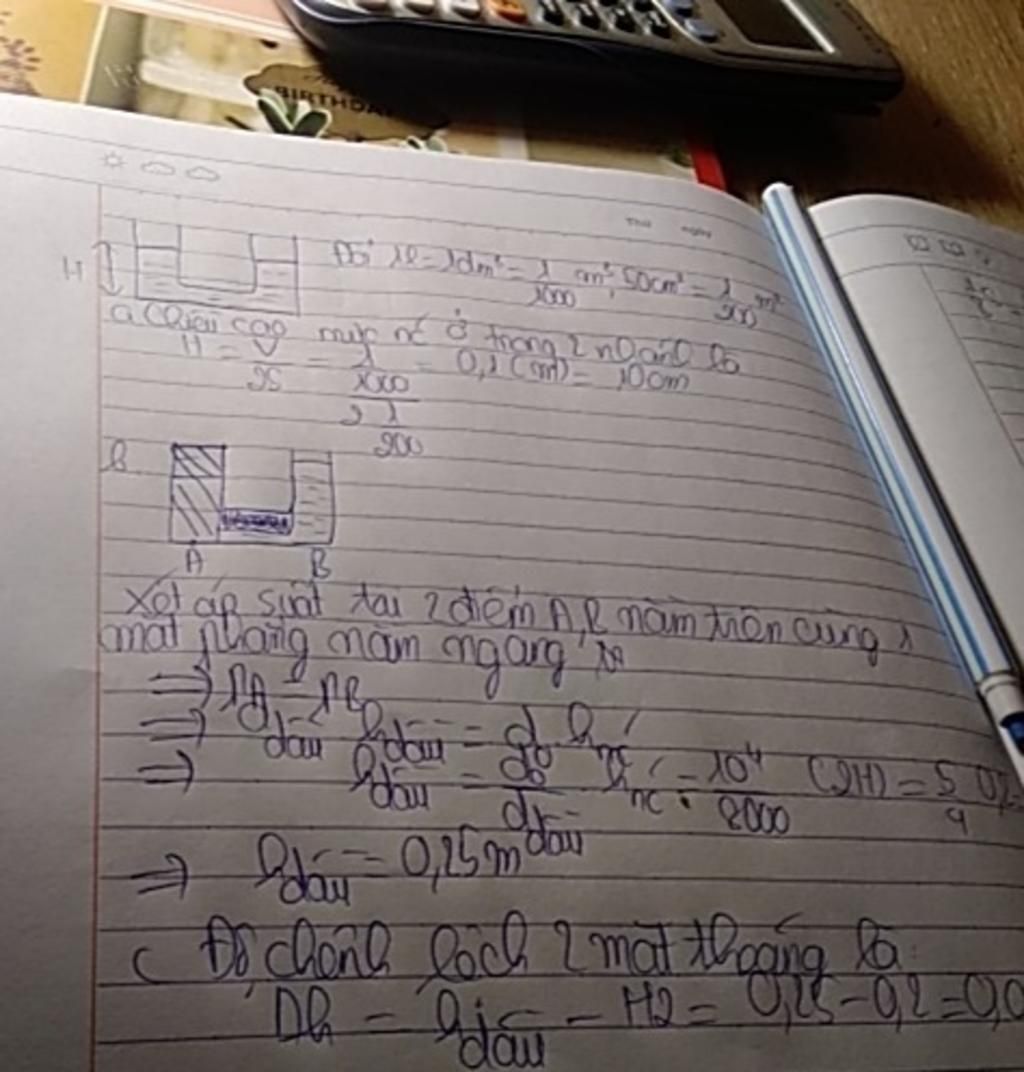 BIRTHDA
Thứ ngày
H
Đổi 1l = 1dm³ = 1/1000 m³, 50cm² = 1/200 m²
a Chiều cao mực nc ở trong 2 nhánh là
H = V/2S = (1/1000)/(2 1/200) = 0,1 (m) = 10cm
b
A B
Xét áp suất tại 2 điểm A, B nằm trên cùng 1
mặt phẳng nằm ngang
=> PA = PB
=> d dầu h dầu = d0 h nc
=> h dầu = d0/d dầu . h nc = 10⁴/8000 (2H) = 5/4 0,2
=> h dầu = 0,25m
c Độ chênh lệch 2 mặt thoáng là
Dh = h dầu - H2 = 0,25 - 0,2 = 0,0